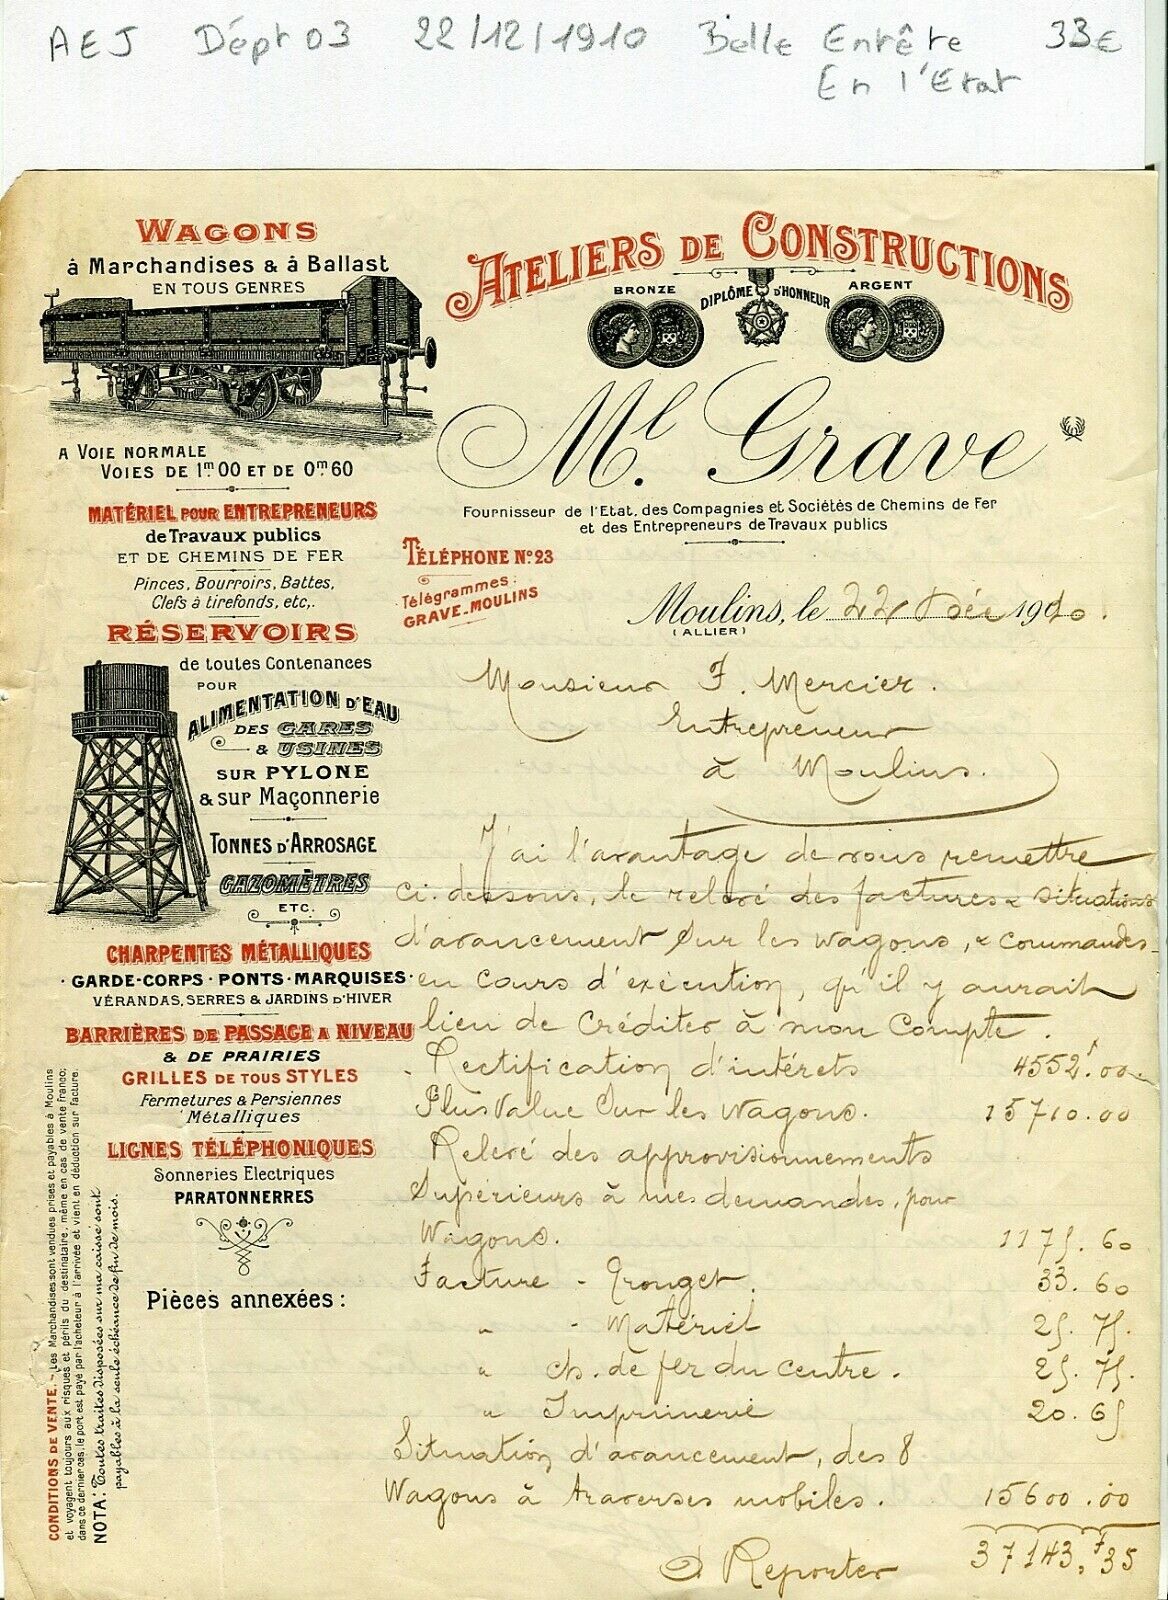 AEJ Dépt 03 22/12/1910 Belle Entête 33€
En l'Etat
WAGONS
à Marchandises & à Ballast
EN TOUS GENRES
A VOIE NORMALE
VOIES DE 1m00 ET DE 0m60
MATÉRIEL POUR ENTREPRENEURS
de Travaux publics
ET DE CHEMINS DE FER
Pinces, Bourroirs, Battes,
Clefs à tirefonds, etc,.
RÉSERVOIRS
de toutes Contenances
POUR
ALIMENTATION D'EAU
DES GARES
& USINES
SUR PYLONE
& SUR Maçonnerie
TONNES D'ARROSAGE
GAZOMÈTRES
ETC.
CHARPENTES MÉTALLIQUES
· GARDE-CORPS · PONTS · MARQUISES ·
VÉRANDAS, SERRES & JARDINS D'HIVER
BARRIÈRES DE PASSAGE A NIVEAU
& DE PRAIRIES
GRILLES DE TOUS STYLES
Fermetures & Persiennes
Métalliques
LIGNES TÉLÉPHONIQUES
Sonneries Electriques
PARATONNERRES
Pièces annexées :
CONDITIONS DE VENTE. – Les Marchandises sont vendues prises et payables à Moulins
et voyagent toujours aux risques et périls du destinataire, même en cas de vente franco;
dans ce dernier cas, le port est payé par l'acheteur à l'arrivée et vient en déduction sur facture.
NOTA: Toutes traites disposées sur ma caisse sont
payables à la seule échéance de fin de mois.
ATELIERS DE CONSTRUCTIONS
BRONZE DIPLÔME D'HONNEUR ARGENT
Ml. Grave
Fournisseur de l'Etat, des Compagnies et Sociétés de Chemins de Fer
et des Entrepreneurs de Travaux publics
TÉLÉPHONE No 23
Télégrammes:
GRAVE-MOULINS
Moulins, le 22 Déc 1910.
(ALLIER)
Monsieur F. Mercier.
Entrepreneur
à Moulins.
J'ai l'avantage de vous remettre
ci-dessous, le relevé des factures & situations
d'avancement sur les wagons, & commandes
en cours d'exécution, qu'il y aurait
lieu de créditer à mon compte.
Rectification d'intérets 4552f.00
Plus Value sur les wagons. 15710.00
Relevé des approvisionnements
supérieurs à mes demandes, pour
Wagons. 1175.60
Facture - Trouget. 33.60
" - Matériel 25.75.
" ch. de fer du centre. 25.75.
" Imprimerie 20.65
Situation d'avancement, des 8
Wagons à traverses mobiles. 15600.00
à Reporter 37143,f35